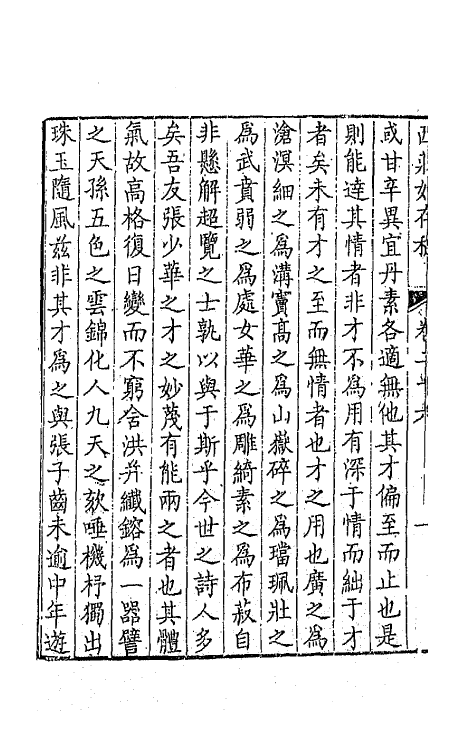 西莊始存稿 卷二十六 一
或甘辛異宜丹素各適無他其才偏至而止也是
則能達其情者非才不爲用有深于情而絀于才
者矣未有才之至而無情者也才之用也廣之爲
滄溟細之爲溝竇高之爲山嶽碎之爲璫珮壯之
爲武賁弱之爲處女華之爲雕綺素之爲布菽自
非懸解超覽之士孰以與于斯乎今世之詩人多
矣吾友張少華之才之妙蔑有能兩之者也其體
氣故高格復日變而不窮舍洪并纖鎔爲一器譬
之天孫五色之雲錦化人九天之欬唾機杼獨出
珠玉隨風茲非其才爲之與張子齒未逾中年遊